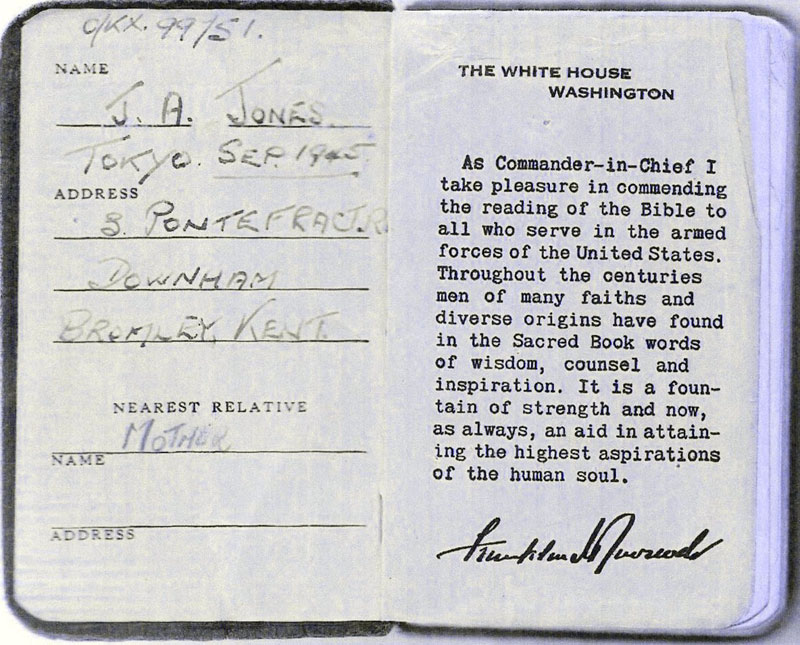 C/KX. 99/51.
NAME
J. A. JONES.
TOKYO. SEP. 1945.
ADDRESS
3. PONTEFRACT.R
DOWNHAM
BROMLEY, KENT.
NEAREST RELATIVE
MOTHER
NAME
ADDRESS
THE WHITE HOUSE
WASHINGTON
As Commander-in-Chief I
take pleasure in commending
the reading of the Bible to
all who serve in the armed
forces of the United States.
Throughout the centuries
men of many faiths and
diverse origins have found
in the Sacred Book words
of wisdom, counsel and
inspiration. It is a foun-
tain of strength and now,
as always, an aid in attain-
ing the highest aspirations
of the human soul.
Franklin D Roosevelt